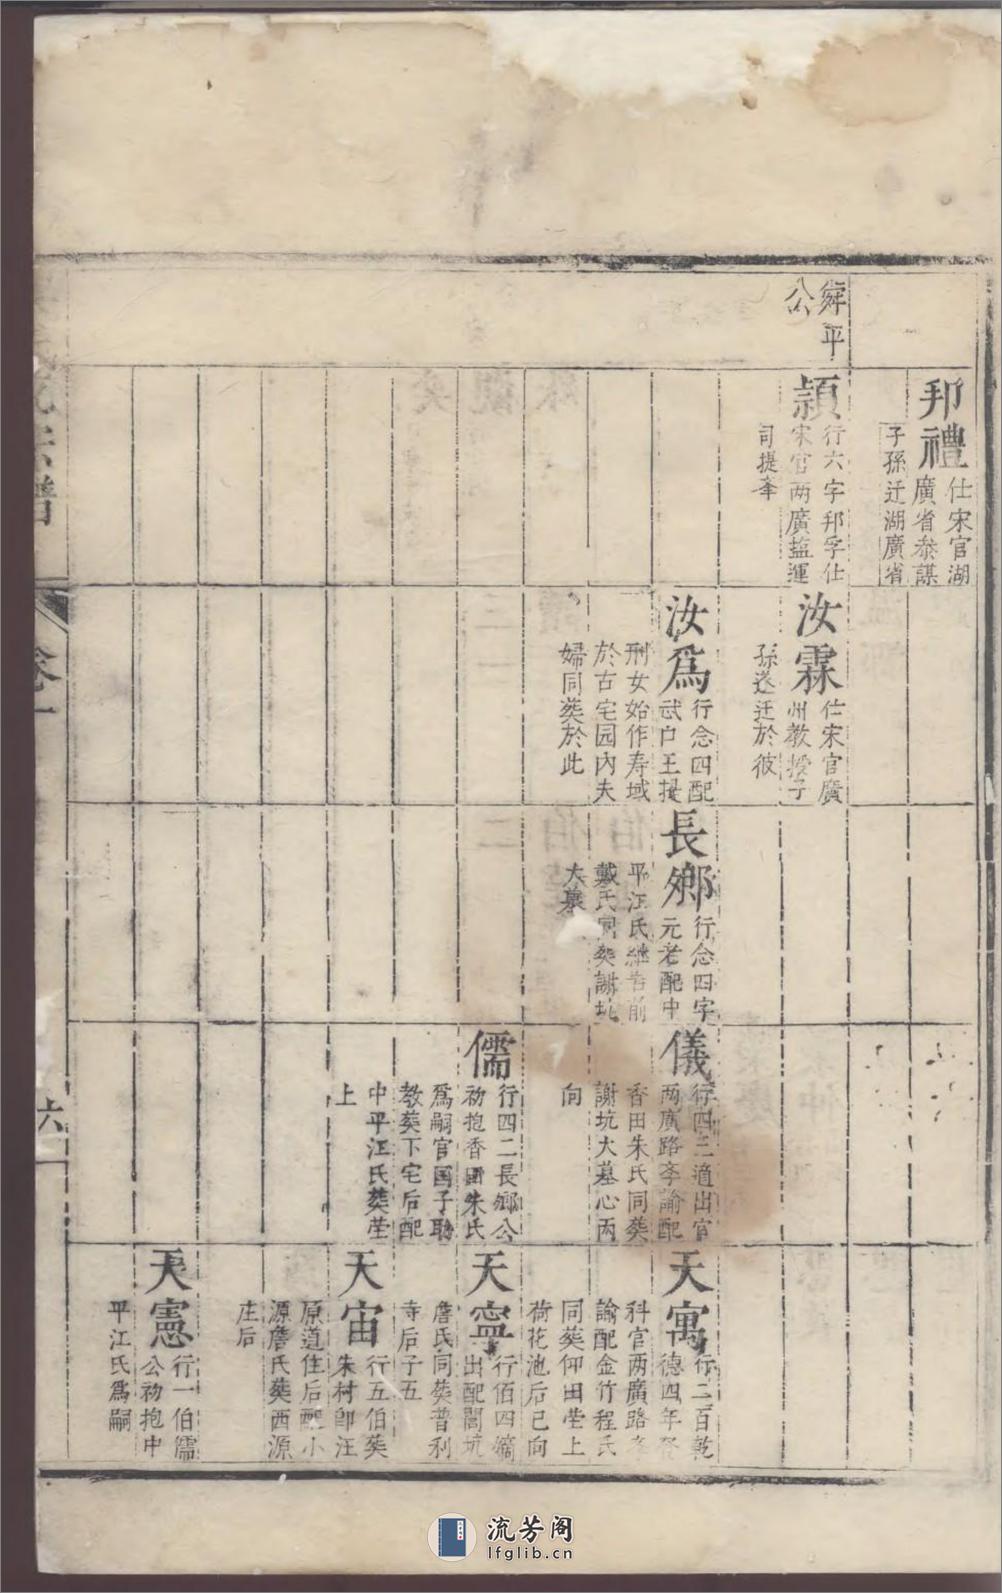 舜平
公
邦禮
仕宋官湖
廣省叅謀
子孫迁湖廣省
頴
行六字邦孚仕
宋官两廣盐運
司提奉
汝霖
仕宋官廣
州教授子
孫遂迁於彼
汝爲
行念四配
武口王提
刑女始作寿域
於古宅园內夫
婦同葵於此
長鄉
行念四字
元老配中
平汪氏継岩前
戴氏同葵謝坑
大墓
儀
行四二適出官
两廣路李諭配
香田朱氏同葵
謝坑大墓心丙
向
儒
行四二長鄉公
初抱香田朱氏
爲嗣官国子助
教葵下宅后配
中平汪氏葵茔
上
天寓
行二百乾
德四年登
科官两廣路李
諭配金竹程氏
同葵仰田茔上
荷花池后已向
天寧
行佰四嫡
出配閭坑
詹氏同葵普利
寺后子五
天宙
行五伯葵
朱村卽汪
原道住后配小
源詹氏葵西源
庄后
天憲
行一伯儒
公初抱中
平江氏爲嗣
宗譜
卷一
六
流芳阁
lfglib.cn